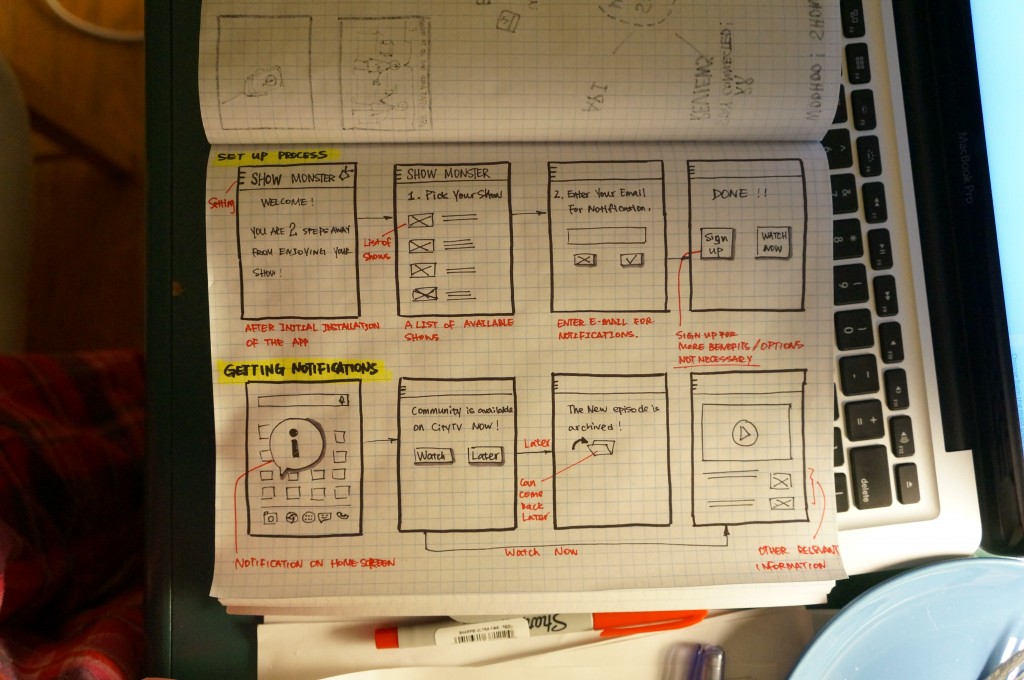 SET UP PROCESS
SHOW MONSTER
WELCOME!
YOU ARE 2 STEPS AWAY
FROM ENJOYING YOUR
SHOW!
Setting
AFTER INITIAL INSTALLATION
OF THE APP
SHOW MONSTER
1. Pick Your Show
List of
Shows
A LIST OF AVAILABLE
SHOWS
2. Enter Your Email
For Notification.
ENTER E-MAIL FOR
NOTIFICATIONS.
DONE !!
Sign
up
WATCH
NOW
SIGN UP FOR
MORE BENEFITS/OPTIONS
NOT NECESSARY
GETTING NOTIFICATIONS
i
NOTIFICATION ON HOME SCREEN
Community is available
on CityTV Now!
Watch
Later
Later
Watch Now
The New episode is
archived!
Can
Come
Back
LATER
OTHER RELEVANT
INFORMATION
MacBook Pro
delete